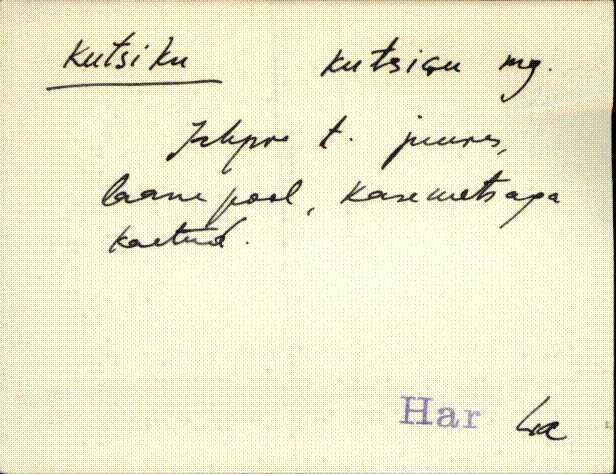 Kutsiku kutsiGu mg.
t. juures,
laane pool, kasemetsaga
kaetud.
Har